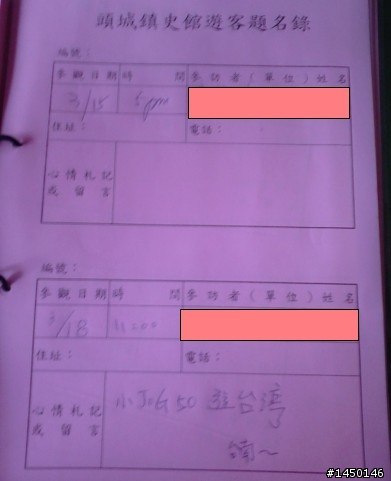 頭城鎮史館遊客題名錄
編號：
參觀日期 時間 參訪者（單位）姓名
3/15 5pm
住址： 電話：
心情札記
或留言
編號：
參觀日期 時間 參訪者（單位）姓名
3/18 11:00
住址： 電話：
小JOG50 遊台灣
心情札記
或留言
#1450146